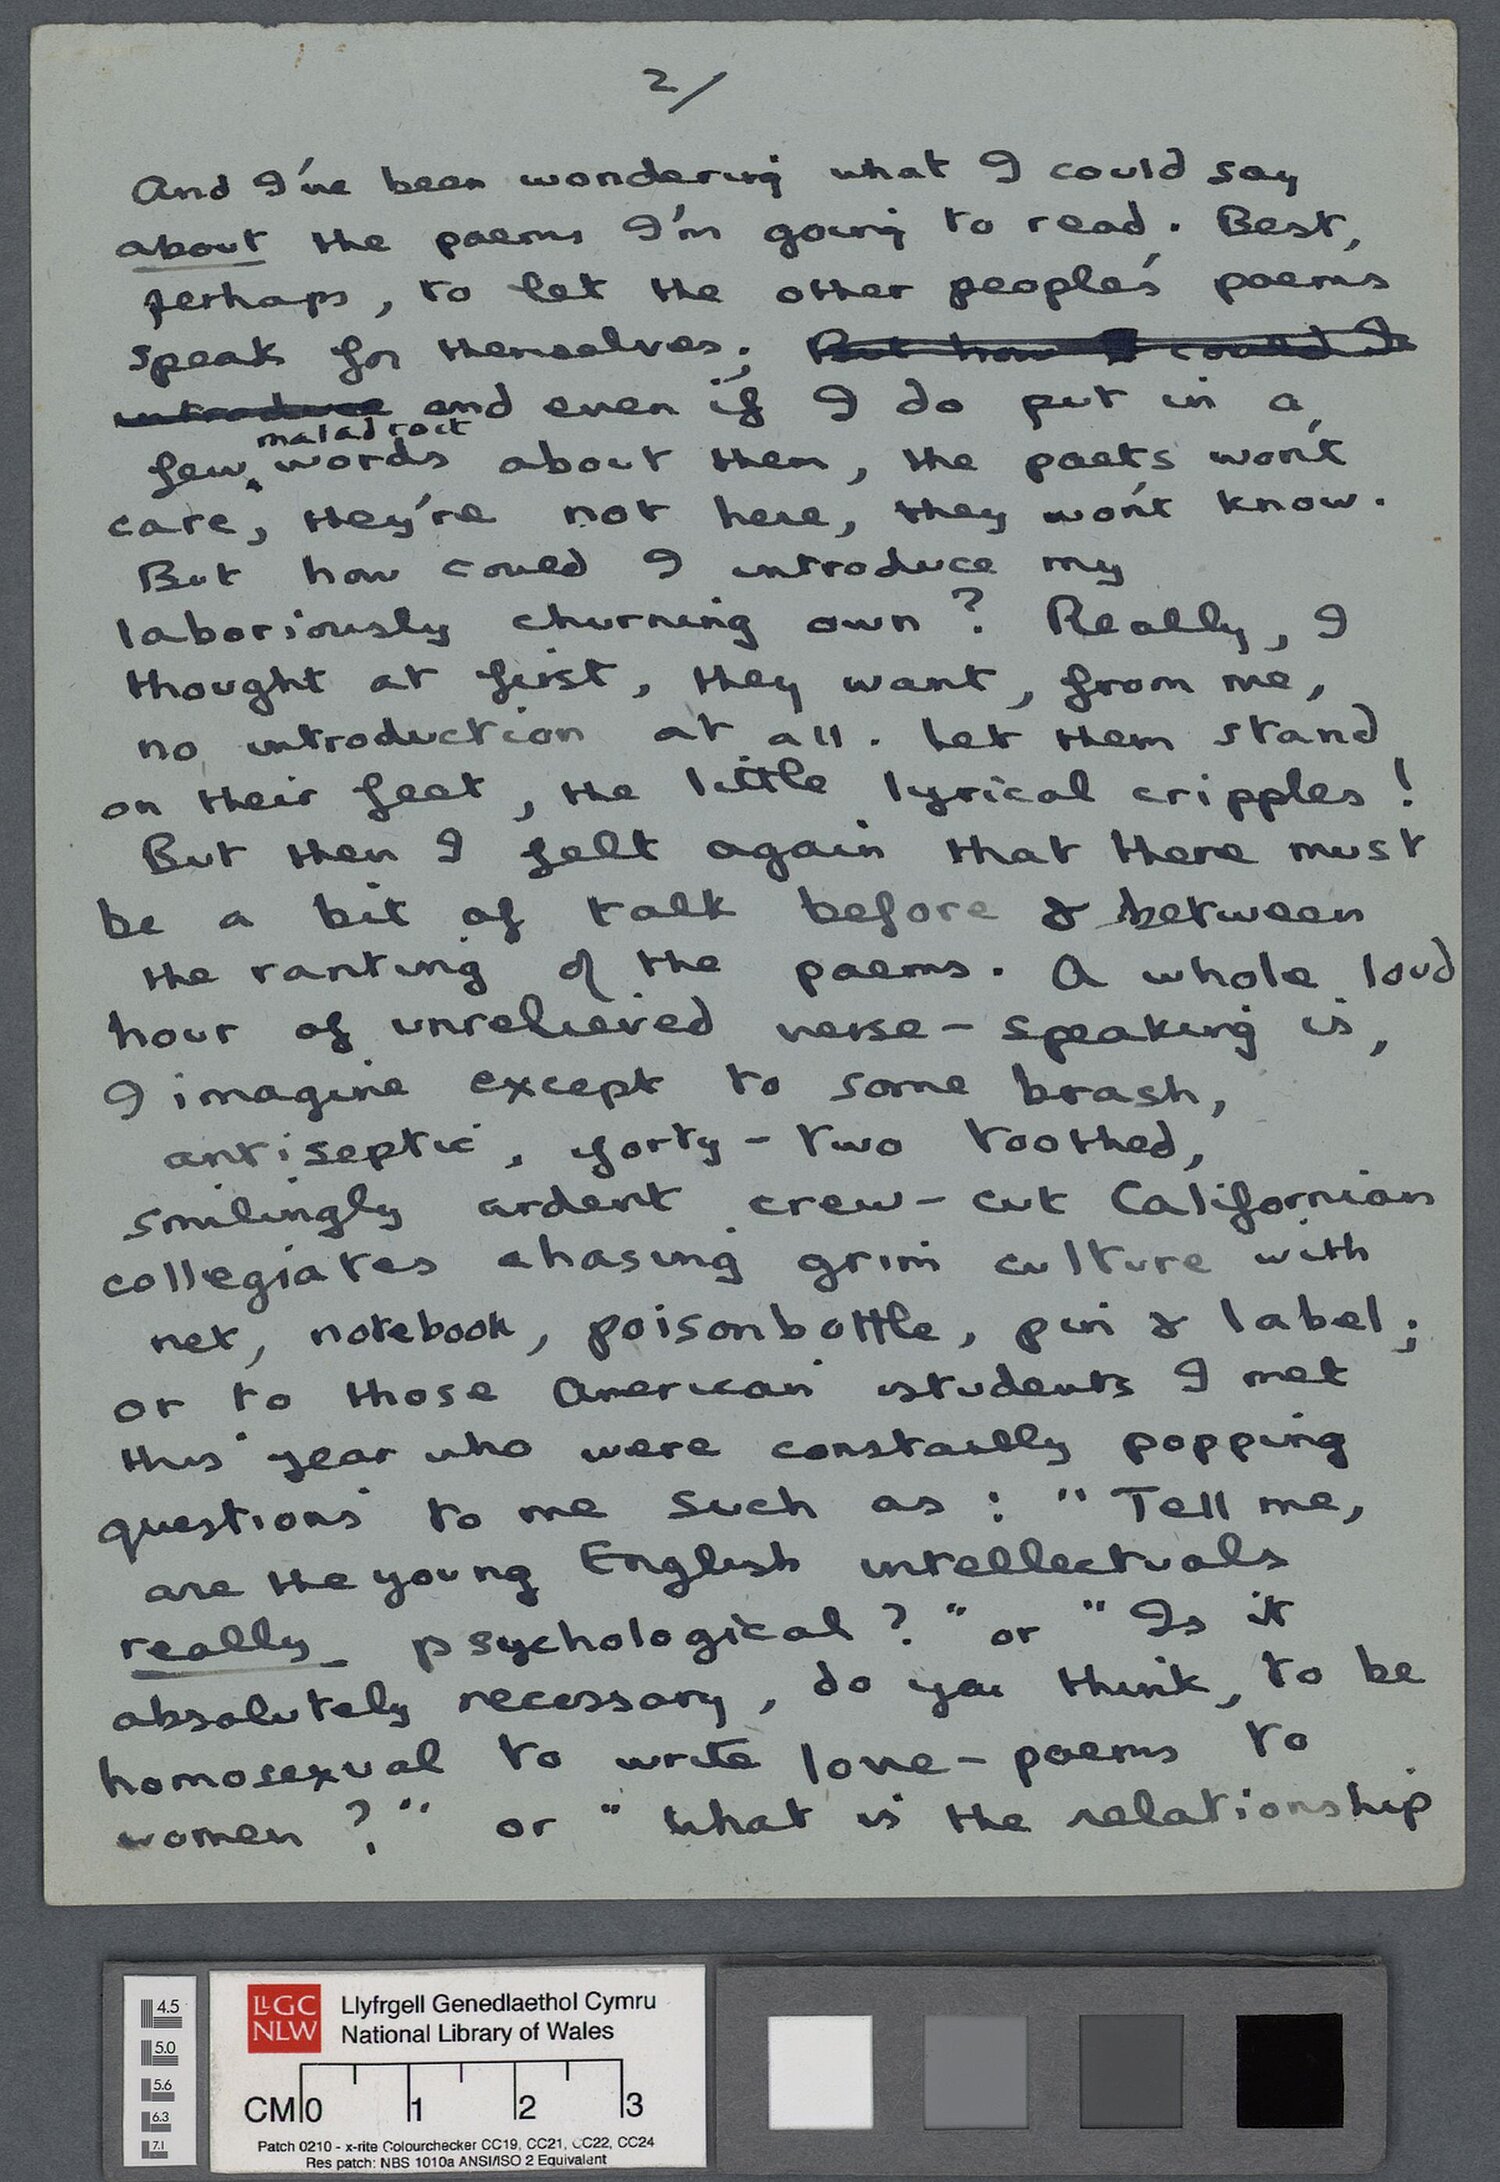 2/
And I've been wondering what I could say
about the poems I'm going to read. Best,
perhaps, to let the other people's poems
speak for themselves; But how I could I
introduce and even if I do put in a
maladroit
few words about them, the poets won't
care, they're not here, they won't know.
But how could I introduce my
laboriously churning own? Really, I
thought at first, they want, from me,
no introduction at all. Let them stand
on their feet, the little lyrical cripples!
But then I felt again that there must
be a bit of talk before & between
the ranting of the poems. A whole loud
hour of unrelieved verse-speaking is,
I imagine except to some brash,
antiseptic, forty-two toothed,
smilingly ardent crew-cut Californian
collegiates chasing grim culture with
net, notebook, poisonbottle, pin & label;
or to those American students I met
this year who were constantly popping
questions to me such as: "Tell me,
are the young English intellectuals
really psychological?" or "Is it
absolutely necessary, do you think, to be
homosexual to write love-poems to
women?" or "What is the relationship
4.5
5.0
5.6
6.3
7.1
LLGC
NLW
Llyfrgell Genedlaethol Cymru
National Library of Wales
CM 0 1 2 3
Patch 0210 - x-rite Colourchecker CC19, CC21, CC22, CC24
Res patch: NBS 1010a ANSI/ISO 2 Equivalent